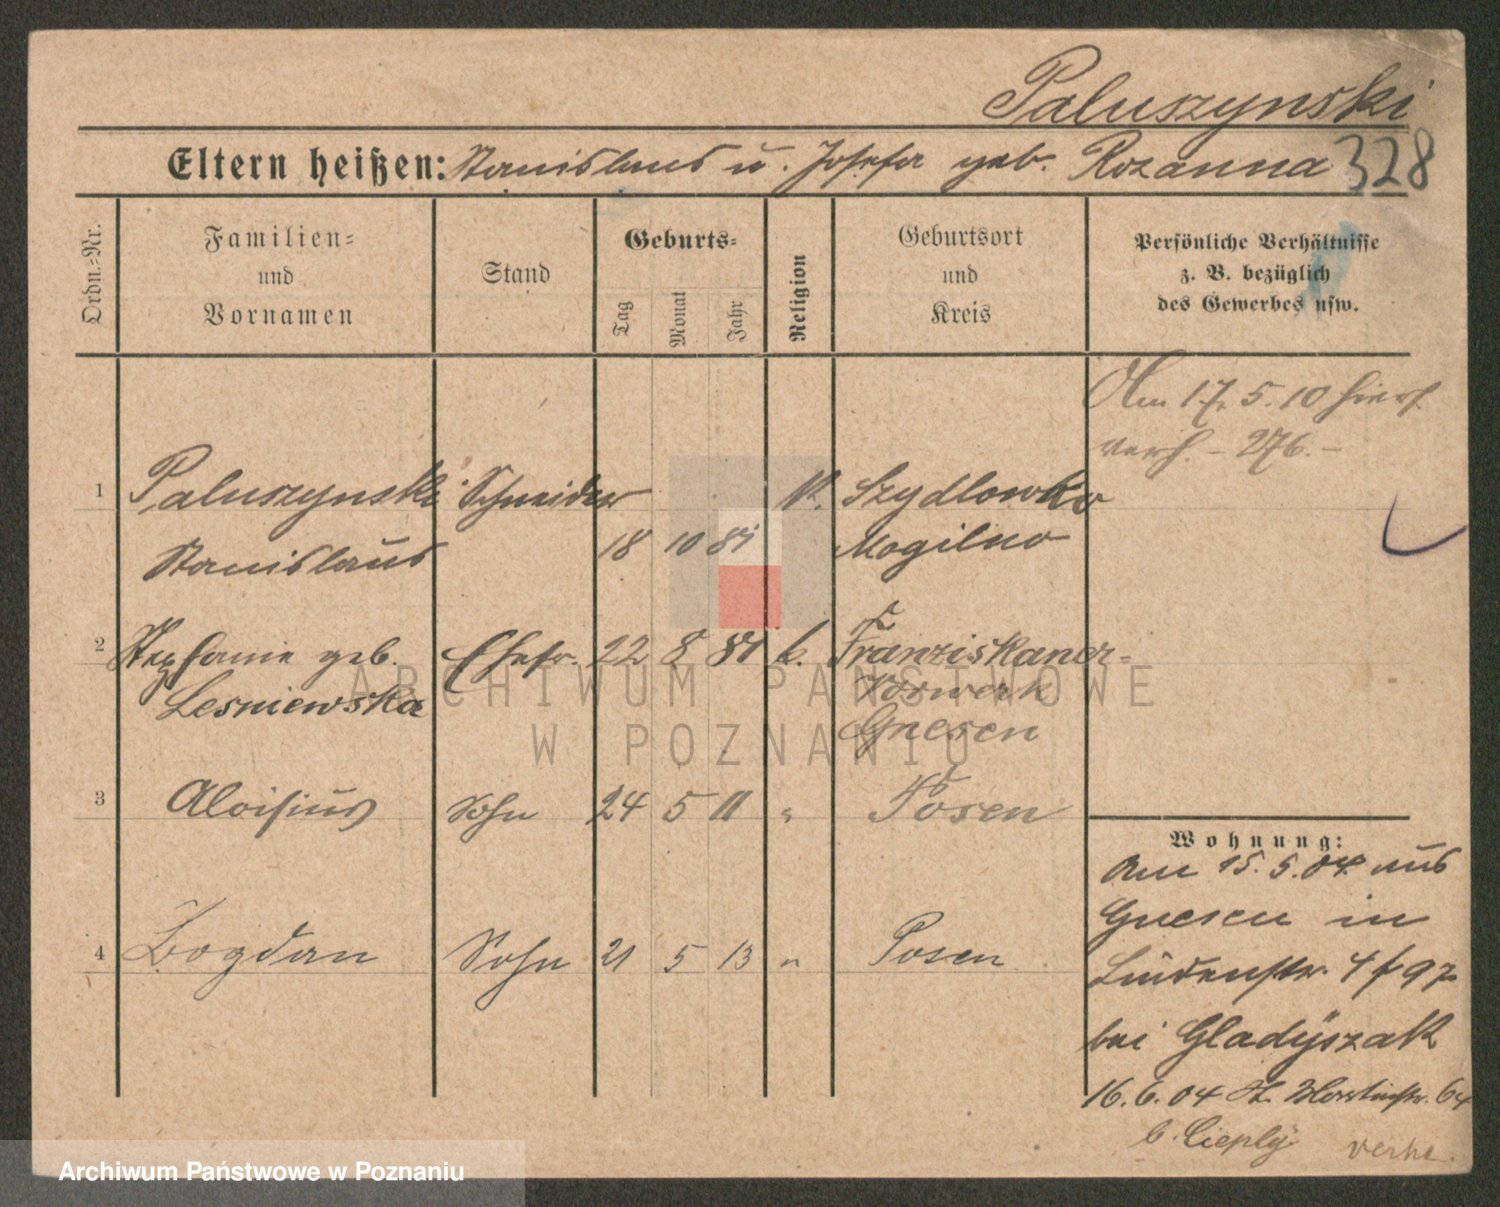 Paluszynski
Eltern heißen: Stanislaus u. Josefa geb. Rozanna 328
Ordn.-Nr.
Familien-
und
Vornamen
Stand
Geburts-
Tag
Monat
Jahr
Religion
Geburtsort
und
Kreis
Persönliche Verhältnisse
z. B. bezüglich
des Gewerbes usw.
Am 17. 5. 10 hiers.
verh. – 276. –
1 Paluszynski Schneider K. Szydlowko
Stanislaus 18 10 81 Mogilno
2 Stephanie geb. Ehefr. 22 8 84 k. Franziskaner-
Lesniewska Vorwerk
Gnesen
3 Aloisius Sohn 24 5 11 " Posen
4 Bogdan Sohn 21 5 13 " Posen
Wohnung:
Am 15. 5. 04. aus
Gnesen in
Lindenstr. 4
bei Gladyszak
16. 6. 04 64
b. Cieply verhe.
ARCHIWUM PAŃSTWOWE
W POZNANIU
Archiwum Państwowe w Poznaniu